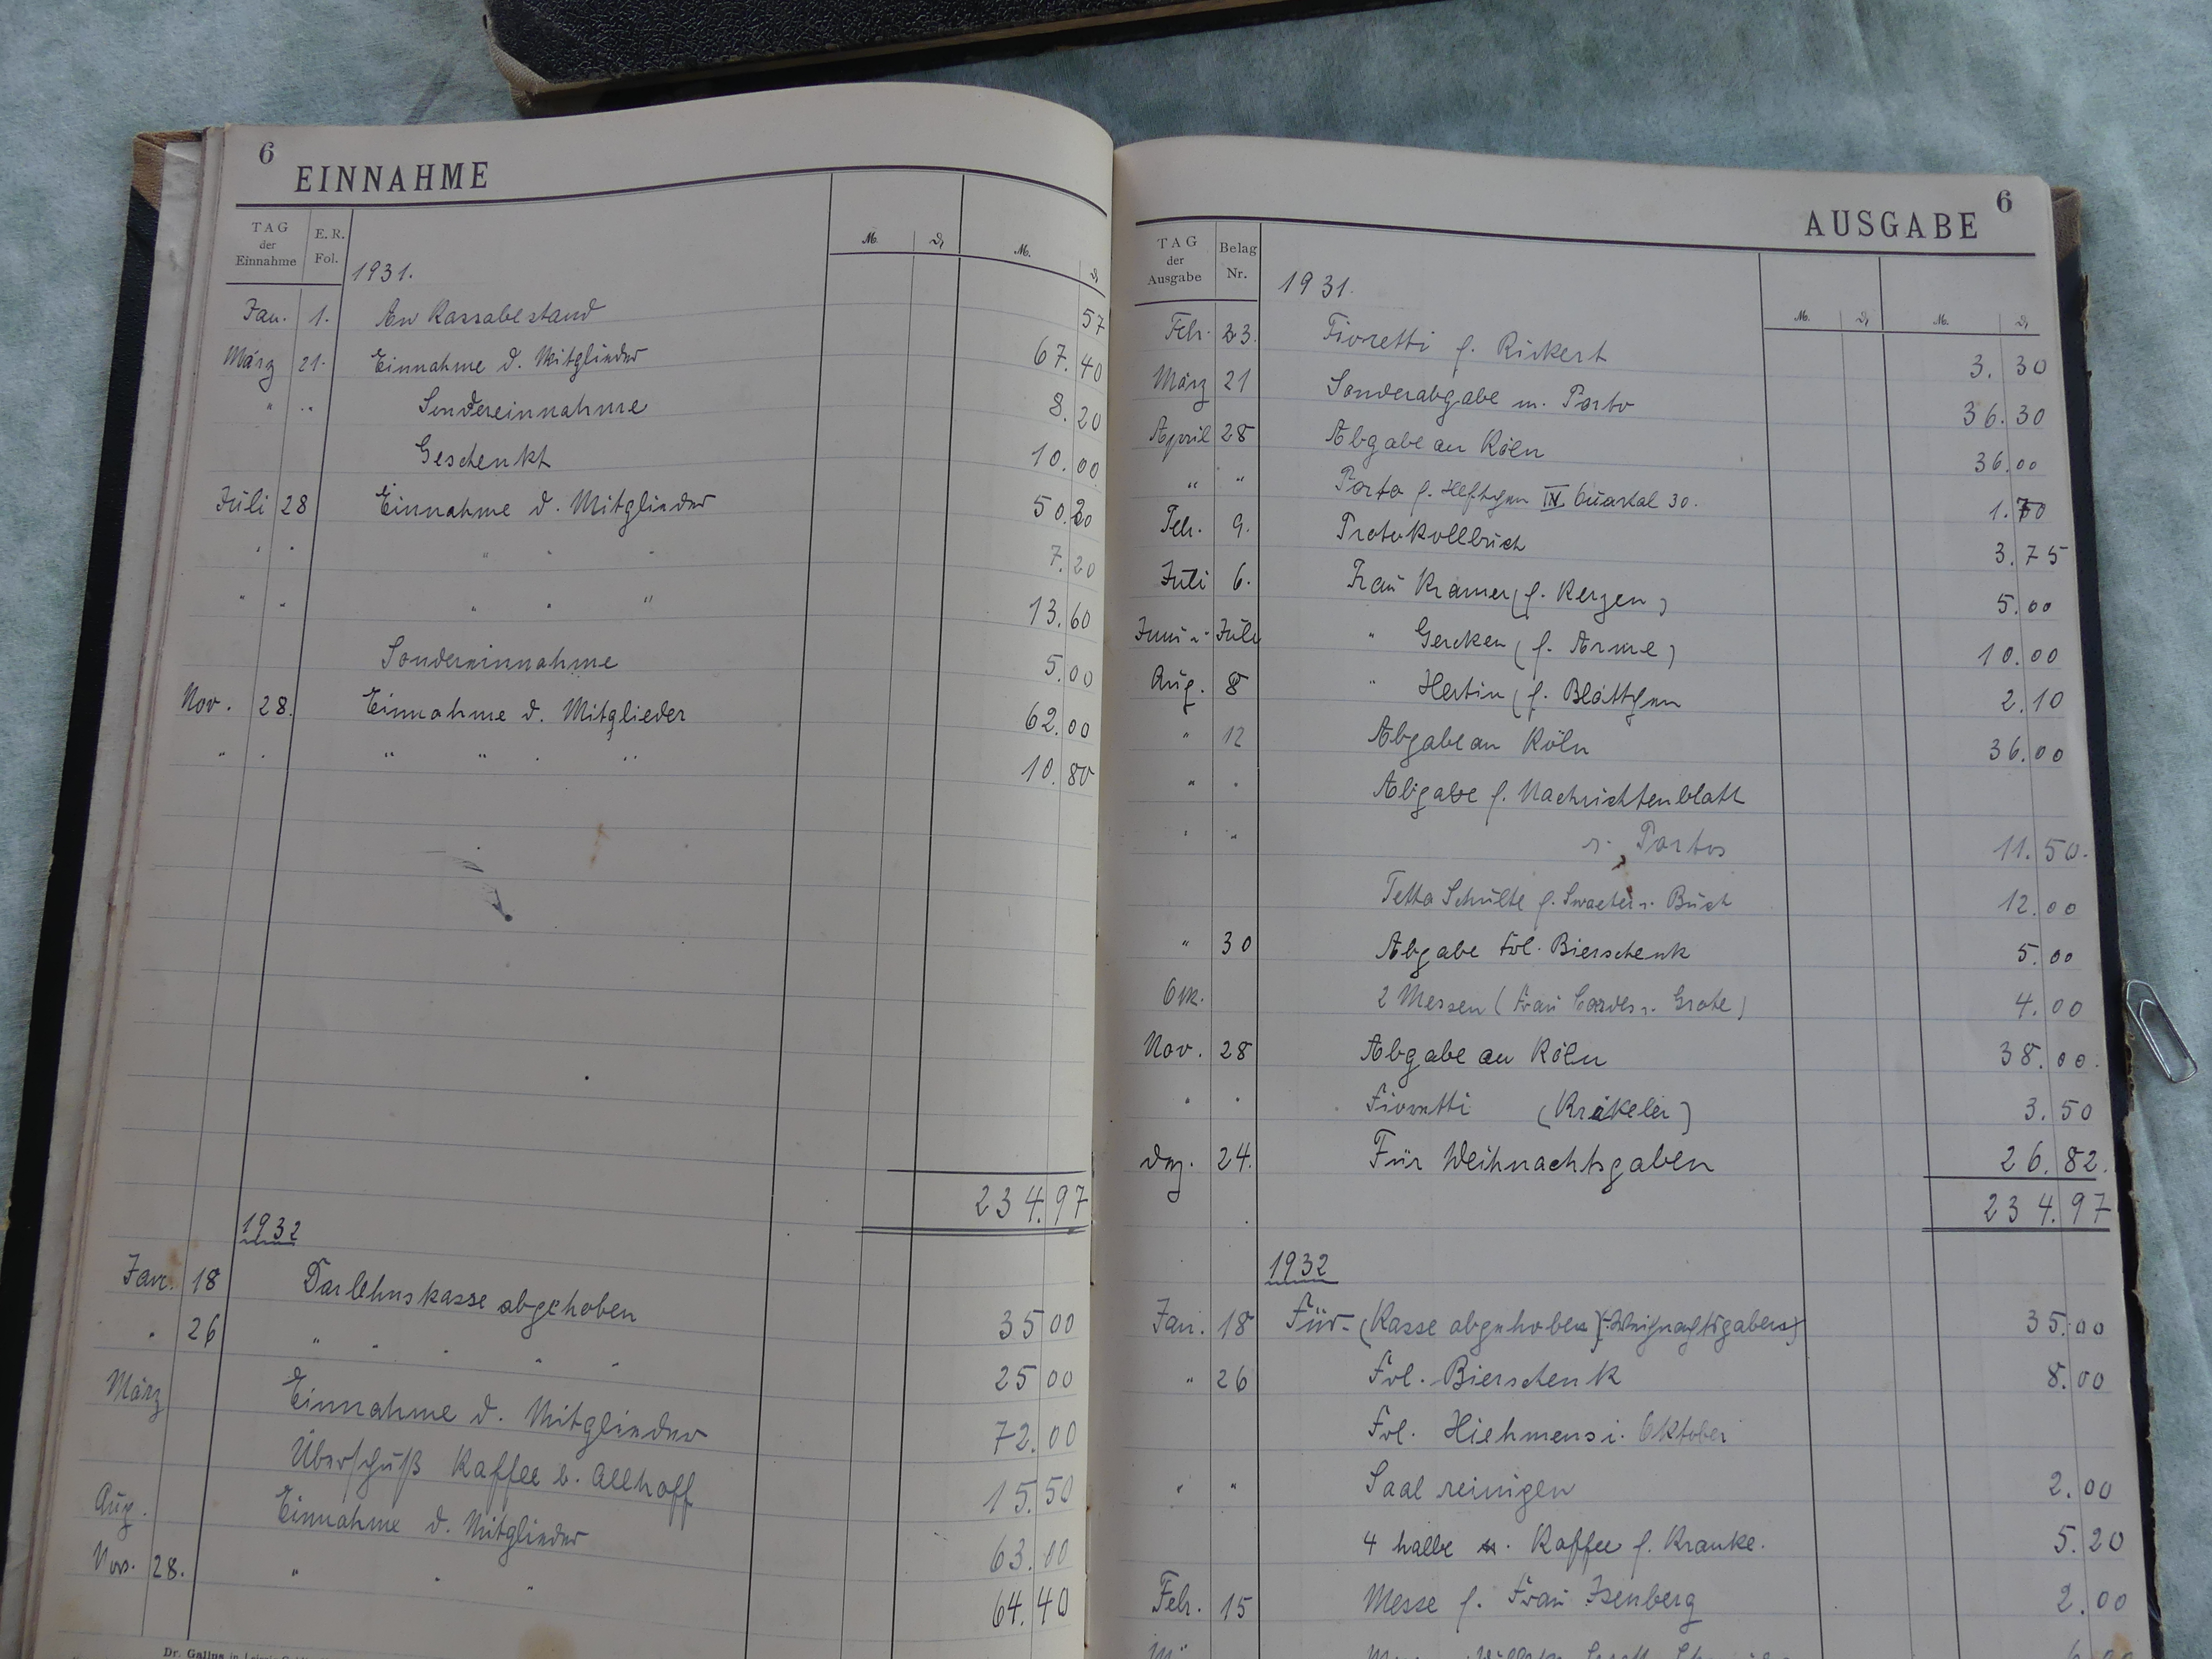 6
EINNAHME
TAG der Einnahme E. R. Fol. M. ₰ M. ₰
1931.
Jan. 1. An Kassabestand 57
März 21. Einnahme d. Mitglieder 67.40
" " Sondereinnahme 8.20
Geschenkt 10.00
Juli 28 Einnahme d. Mitglieder 50.20
" " " " " 7.20
" " " " " 13.60
Sondereinnahme 5.00
Nov. 28. Einnahme d. Mitglieder 62.00
" " " " " " 10.80
234.97
1932
Jan. 18 Darlehnskasse abgehoben 35 00
" 26 " " " " " 25 00
März Einnahme d. Mitglieder 72.00
Überschuß Kaffee b. Allhoff 15.50
Aug. Einnahme d. Mitglieder 63.00
Nov. 28. " " " 64.40
Dr. Gallus in
6
AUSGABE
TAG der Ausgabe Belag Nr. M. ₰ M. ₰
1931.
Febr. 23. Fioretti f. Rickert 3.30
März 21 Sonderabgabe m. Porto 36.30
April 28 Abgabe an Köln 36.00
" " Porto f. Heftchen IV Quartal 30. 1.70
Febr. 9. Protokollbuch 3.75
Juli 6. Frau Kramer (f. Kerzen) 5.00
Juni u. Juli " Gercken (f. Arme) 10.00
Aug. 8 " Hertin (f. Blättchen 2.10
" 12 Abgabe an Köln 36.00
" " Abgabe f. Nachrichtenblatt
" " u. Portos 11.50.
Schulte f. u. Buch 12.00
" 30 Abgabe Frl. Bierschenk 5.00
Okt. 2 Messen (Frau Cordes u. Grote) 4.00
Nov. 28 Abgabe an Köln 38.00.
" " Fioretti (Kräkeler) 3.50
Dez. 24. Für Weihnachtsgaben 26.82.
234.97
1932
Jan. 18 Für (Kasse abgehoben) Weihnachtsgaben) 35.00
" 26 Frl. Bierschenk 8.00
Frl. Hiehmens i. Oktober
" " Saal reinigen 2.00
4 halbe Kaffee f. Kranke. 5.20
Febr. 15 Messe f. Frau Isenberg 2.00